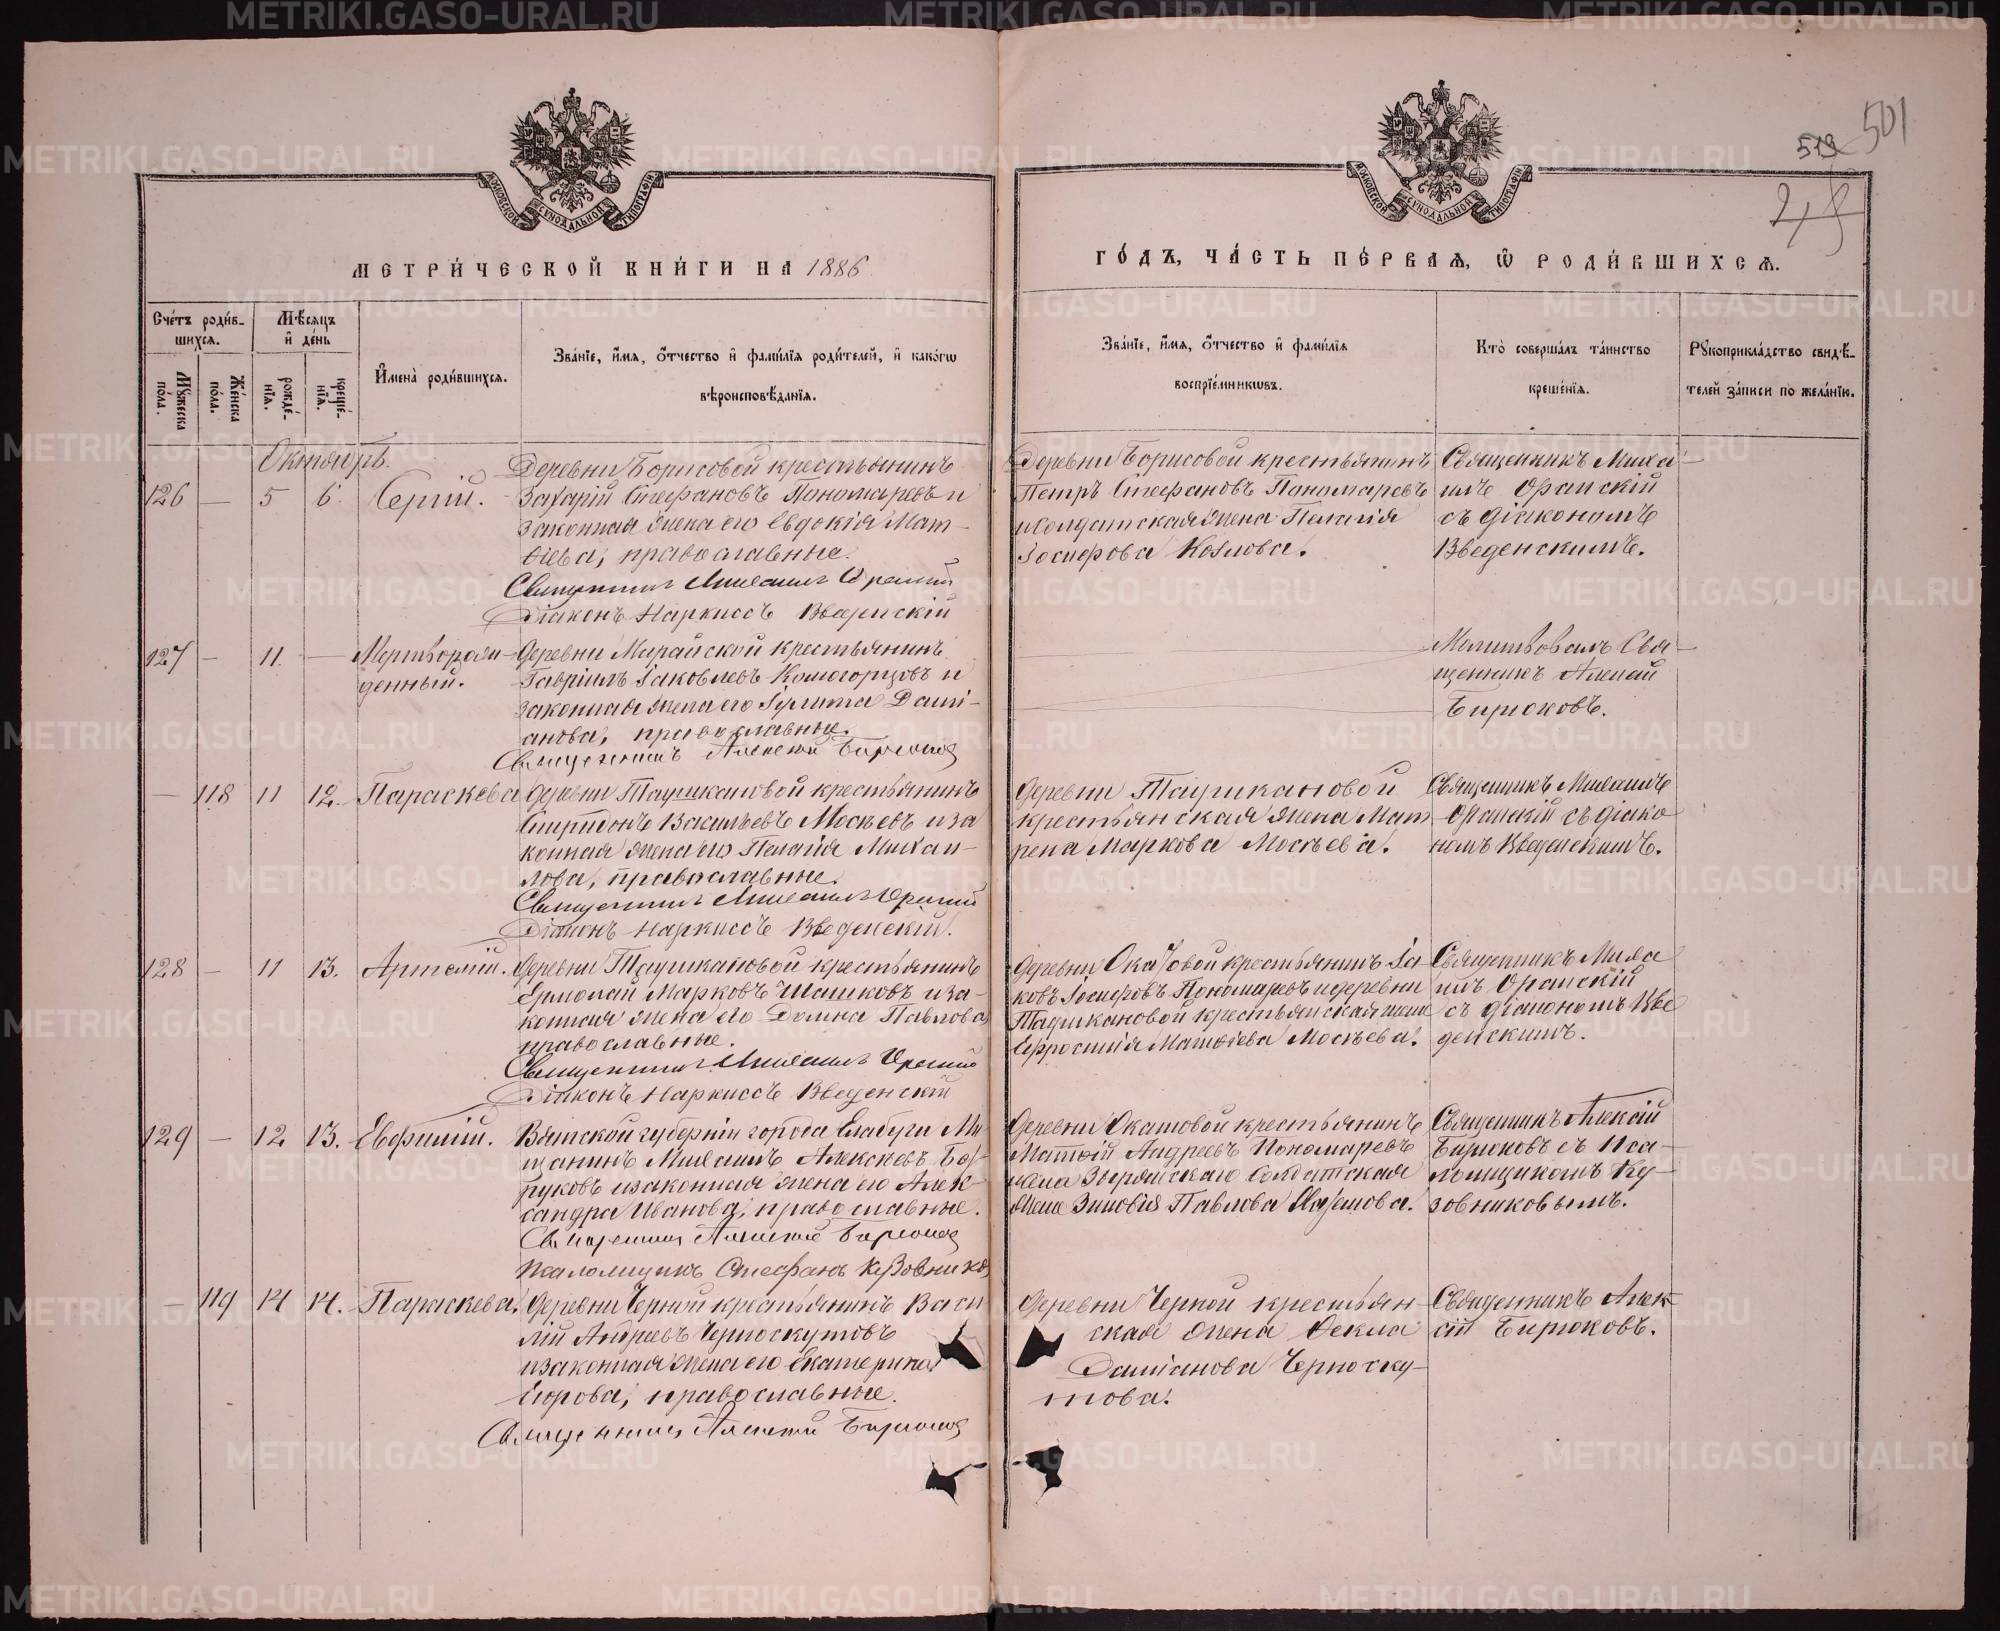 501
519
МЕТРИ́ЧЕСКОЙ КНИ́ГИ НА 1886
ГО́ДЪ, ЧА́СТЬ ПЕ́РВАѦ, Ѡ҆ РОДИ́ВШИХСѦ.
Сче́тъ роди́в-
шихсѧ.
Мѣ́сѧцъ
и҆ де́нь
И҆мена̀ роди́вшихсѧ.
Зва́нїе, и҆́мѧ, ѻ҆́тчество и҆ фами́лїѧ роди́телей, и҆ како́гѡ
вѣроисповѣ́данїѧ.
Мꙋ́жеска
по́ла.
Же́нска
по́ла.
рожде́-
нїѧ.
креще́-
нїѧ.
Зва́нїе, и҆́мѧ, ѻ҆́тчество и҆ фами́лїѧ
воспрїе́мникѡвъ.
Кто̀ соверша́лъ та́инство
креще́нїѧ.
Рꙋкоприкла́дство свидѣ́-
телей за́писи по жела́нїю.
Октябрь.
126 — 5 6. Сергій.
Деревни Борисовой крестьянинъ
Захарій Стефановъ Пономаревъ и
законная жена его Евдокія Мат-
ѳіева, православные.
Священникъ Михаилъ Оранскій
Діаконъ Наркиссъ Введенскій
Деревни Борисовой крестьянинъ
Петръ Стефановъ Пономаревъ
и солдатская жена Пелагія
Іосифова Козлова.
Священникъ Миха-
илъ Оранскій
съ діакономъ
Введенскимъ.
127 — 11. — Мертворож-
денный.
Деревни Мурайской крестьянинъ
Гавріилъ Іаковлевъ Комогорцовъ и
законная жена его Іулитта Дамі-
анова, православные.
Священникъ Алексій Бирюковъ
Молитвовалъ Свя-
щенникъ Алексій
Бирюковъ.
— 118 11 12. Параскева
Деревни Таушкановой крестьянинъ
Спиридонъ Васильевъ Мосѣевъ и за
конная жена его Пелагія Михаи-
лова, православные.
Священникъ Михаилъ Оранскій
Діаконъ Наркиссъ Введенскій.
Деревни Таушкановой
крестьянская жена Мат
рена Маркова Мосѣева.
Священникъ Михаилъ
Оранскій съ діако
номъ Введенскимъ.
128 — 11 13. Артемій.
Деревни Таушкановой крестьянинъ
Ермолай Марковъ Шашковъ и за-
конная жена его Домна Павлова
православные.
Священникъ Михаилъ Оранскій
Діаконъ Наркиссъ Введенскій
Деревни Окатовой крестьянинъ Іа-
ковъ Іосифовъ Пономаревъ и деревни
Таушкановой крестьянская жена
Ефросинія Матѳіева Мосѣева.
Священникъ Миха
илъ Оранскій
съ діакономъ Вве
денскимъ.
129 — 12 13. Евфимій.
Вятской губерніи города Елабуги Мѣ-
щанинъ Михаилъ Алексѣевъ
и законная жена его Алек-
сандра Иванова, православные.
Священникъ Алексій Бирюковъ
Псаломщикъ Стефанъ Кузовниковъ
Деревни Окатовой крестьянинъ
Матѳій Андреевъ Пономаревъ
солдатская
жена Зиновія Павлова
Священникъ Алексій
Бирюковъ съ Пса-
ломщикомъ Ку-
зовниковымъ.
— 119 14 14. Параскева.
Деревни Черной крестьянинъ Васи
лій Андреевъ Черноскутовъ
и законная жена его Екатерина
Егорова, православные.
Священникъ Алексій Бирюковъ
Деревни Черной крестьян-
ская жена Ѳекла
Даміанова Черноску-
това.
Священникъ Алек-
сій Бирюковъ.
METRIKI.GASO-URAL.RU